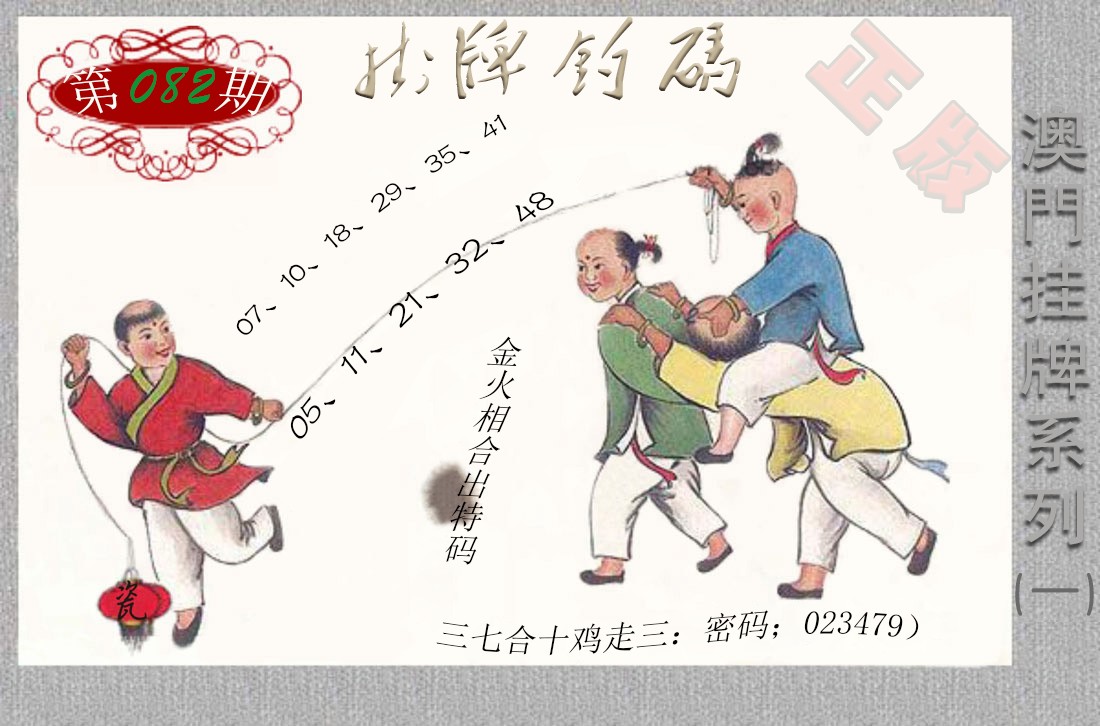 第082期
掛牌釣碼
正版
07、10、18、29、35、41
05、11、21、32、48
金火相合出特码
瓷
三七合十鸡走三：密码；023479）
澳門挂牌系列(一)